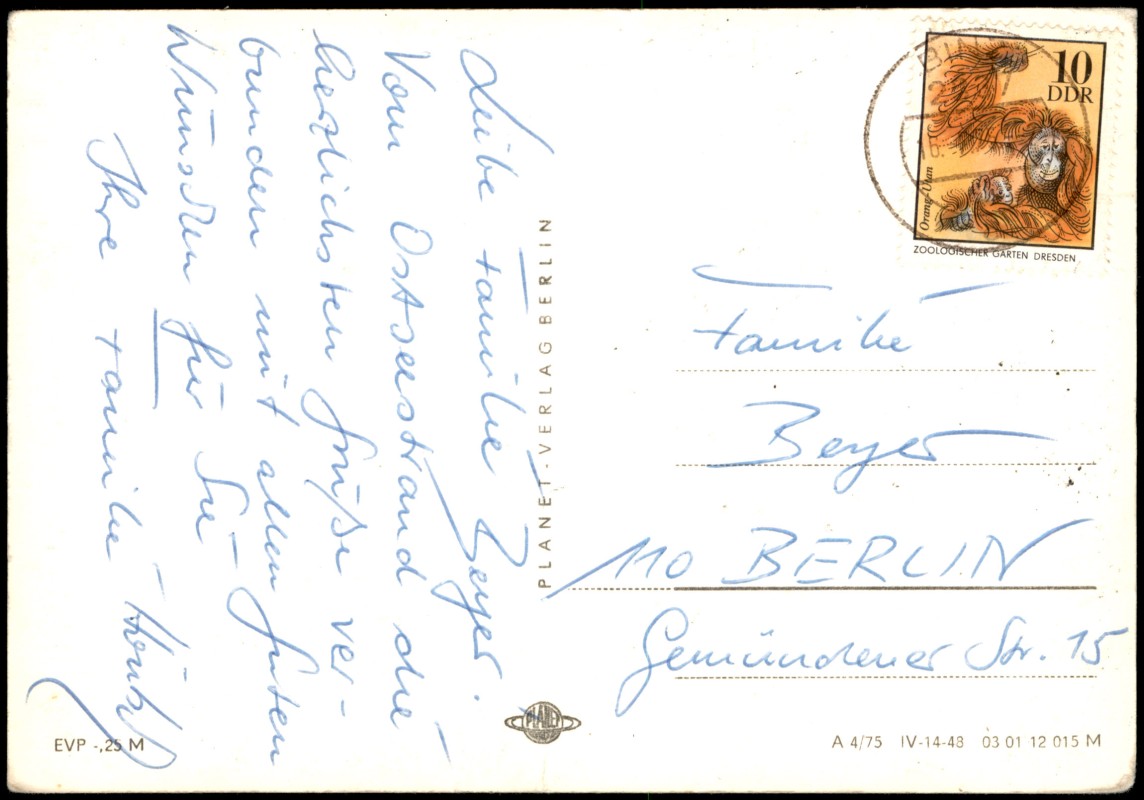 Liebe Familie Beyer.
Vom Ostseestrand die
herzlichsten Grüße ver-
bunden mit allen guten
Wünschen für Sie
Ihre Familie
PLANET-VERLAG BERLIN
10
DDR
Orang-Utan
ZOOLOGISCHER GARTEN DRESDEN
BIN
Familie
Beyer
110 BERLIN
Gemündener Str. 15
PLANET
EVP -,25 M
A 4/75 IV-14-48 03 01 12 015 M